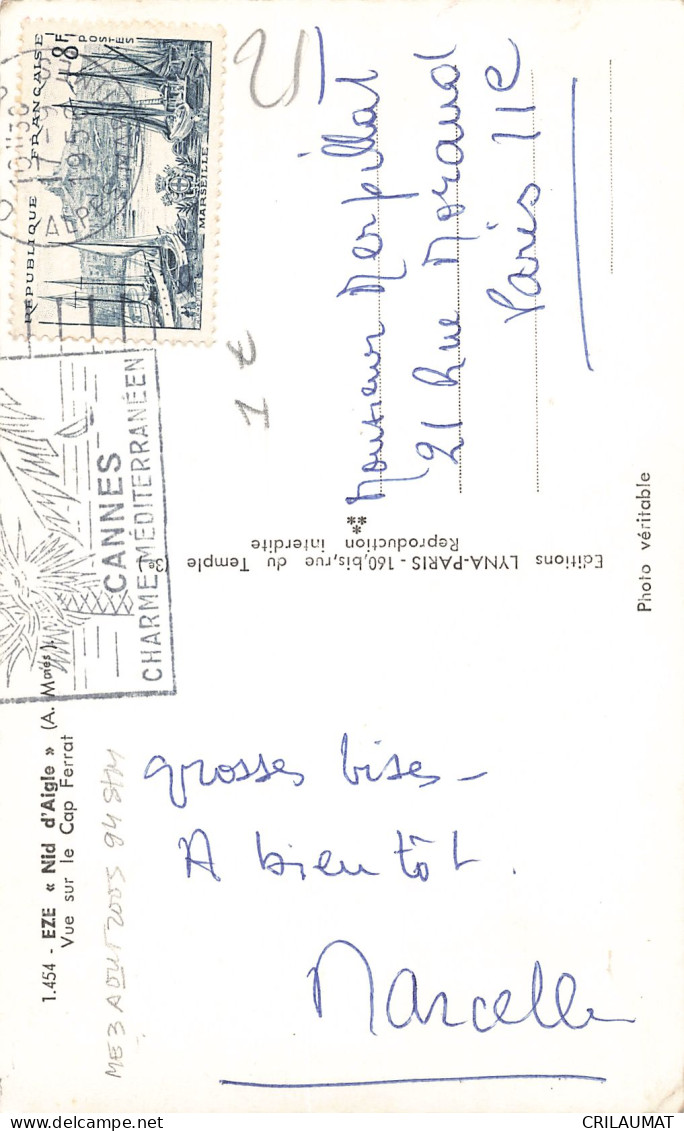 1.454 - EZE « Nid d'Aigle » (A. Mmes).
Vue sur le Cap Ferrat
grosses bises -
A bientôt.
Marcelle
Editions LYNA-PARIS - 160,bis,rue du Temple (3e)
Reproduction interdite
Photo véritable
RÉPUBLIQUE FRANÇAISE
8F
POSTES
MARSEILLE
17-9
1956
ALPES MAR
CANNES
CHARME MÉDITERRANÉEN
Monsieur Merpillat
21 Rue Morand
Paris 11e
1 €
ME 3 AOUT 2005 94 STM
CRILAUMAT